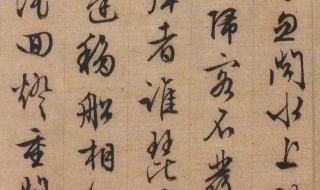 忽聞水上
歸客不發
彈者誰琵
遲移船相
回燈重